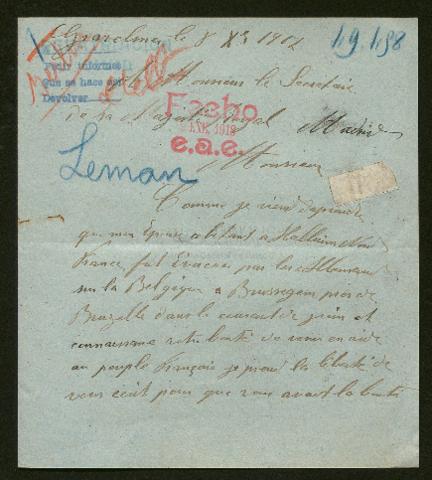 Gravelines le 8 Xbre 1917
49.198
Pedir informes
Que se hace así
Devolver
Monsieur le Secretaire
de sa Majesté Royal Madrid
Fecho
ENE. 1918
e.a.e.
Leman
Monsieur
Comme je vient d'aprendre
que mon Epouse abitant a Halluin Nord
France fut Evacuer par les Allemand
sur la Belgique a Brussegem pres de
Bruxelle dans le courant de juin et
connaissant votre bonté de venir en aide
au peuple Français je prend la liberté de
vous ecrit pour que vous auait la bonté